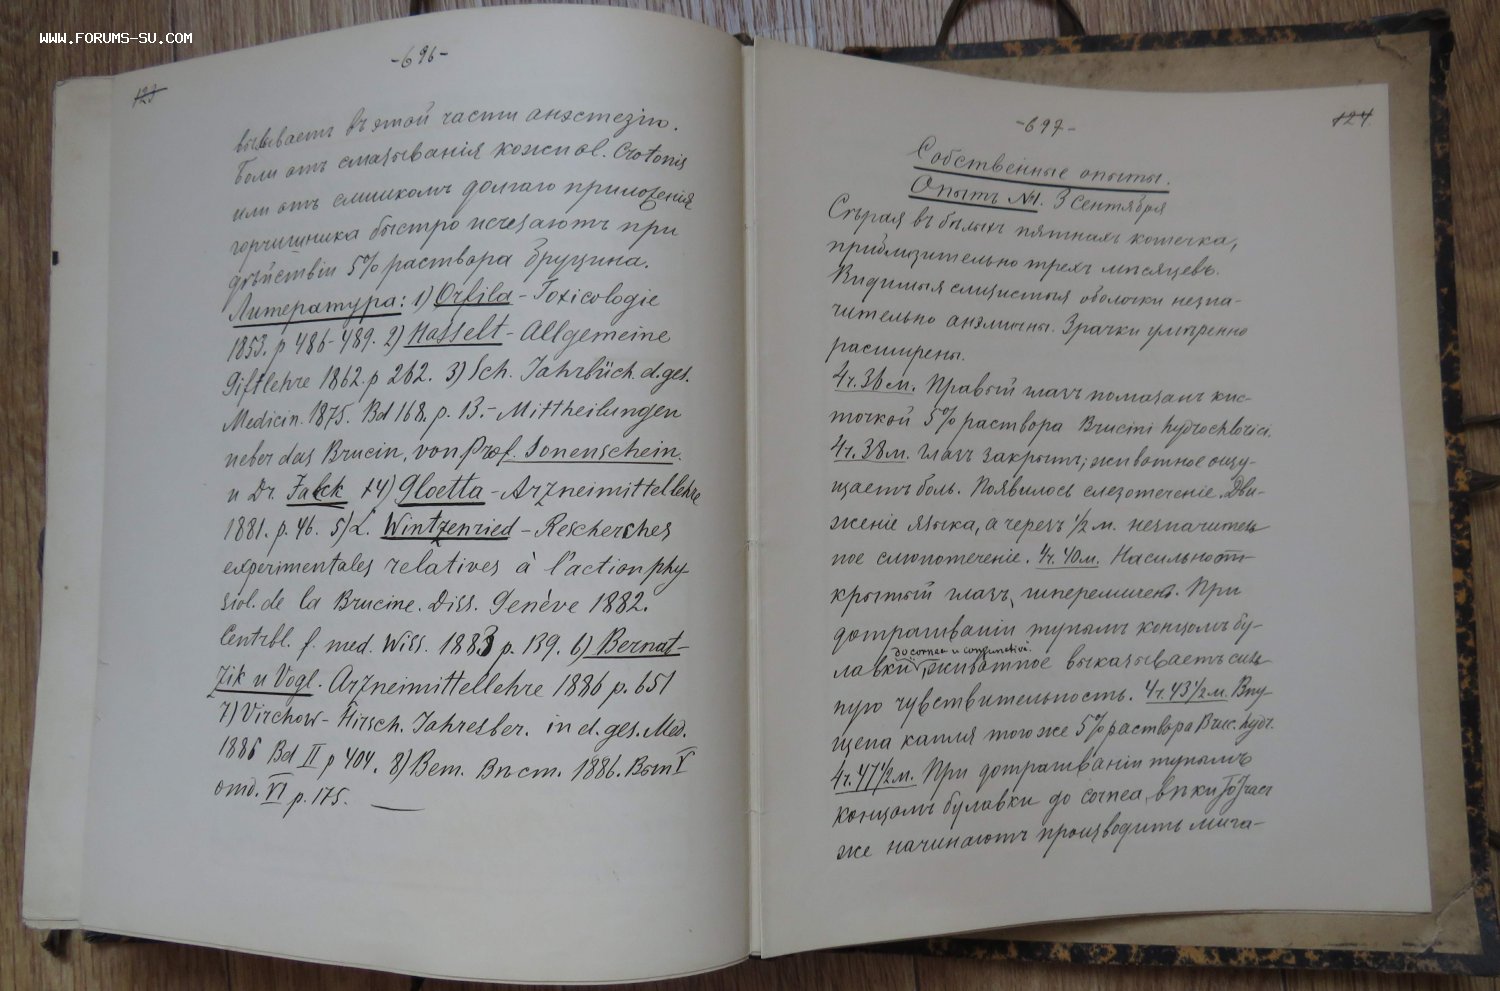 WWW.FORUMS-SU.COM
-696-
123
вызываетъ въ этой части анэстезiю.
Боли отъ смазыванія кожи ol. Crotonis
или отъ слишкомъ долгаго приложенія
горчишника быстро исчезаютъ при
дѣйствіи 5% раствора бруцина.
Литература: 1) Orfila - Toxicologie
1853. p 486-489. 2) Hasselt - Allgemeine
Giftlehre 1862. p 262. 3) Sch. Jahrbüch. d. ges.
Medicin. 1875. Bd 168. p. 13. - Mittheilungen
ueber das Brucin, von Prof. Sonenschein.
и Dr. Falck 4) Gloetta - Arzneimittellehre
1881. p. 46. 5) L. Wintzenried - Rescherches
experimentales relatives à l'action phy-
siol. de la Brucine. Diss. Genève 1882.
Centrbl. f. med. Wiss. 1883 p. 139. 6) Bernat-
zik и Vogl. Arzneimittellehre 1886 p. 651
7) Virchow - Hirsch. Jahresber. in d. ges. Med.
1886 Bd II p 404. 8) Вет. Вѣст. 1886. Вып V
отд. VI p. 175.
-697-
124
Собственные опыты.
Опытъ №1. 3 сентября
Сѣрая въ бѣлыхъ пятнахъ кошечка,
приблизительно трехъ мѣсяцевъ.
Видимыя слизистыя оболочки незна-
чительно анэмичны. Зрачки умѣренно
расширены.
4ч. 36 м. Правый глазъ помазанъ кис-
точкой 5% раствора Brucini hydrochlorici.
4ч. 38 м. Глазъ закрытъ; животное ощу-
щаетъ боль. Появилось слезотеченіе. Дви-
женіе языка, а черезъ 1/2 м. незначитель
ное слюнотеченіе. 4ч. 40 м. Насильно от-
крытый глазъ, гиперемичен. При
дотрагиваніи тупымъ концомъ бу-
до cornea и conjunctiva.
лавки, животное выказываетъ силь
ную чувствительность. 4ч 43 1/2 м. Впу-
щена капля того же 5% раствора Bruc. hydr.
4ч. 47 1/2 м. При дотрагиваніи тупымъ
концомъ булавки до cornea, вѣки
же начинаютъ производить мига-